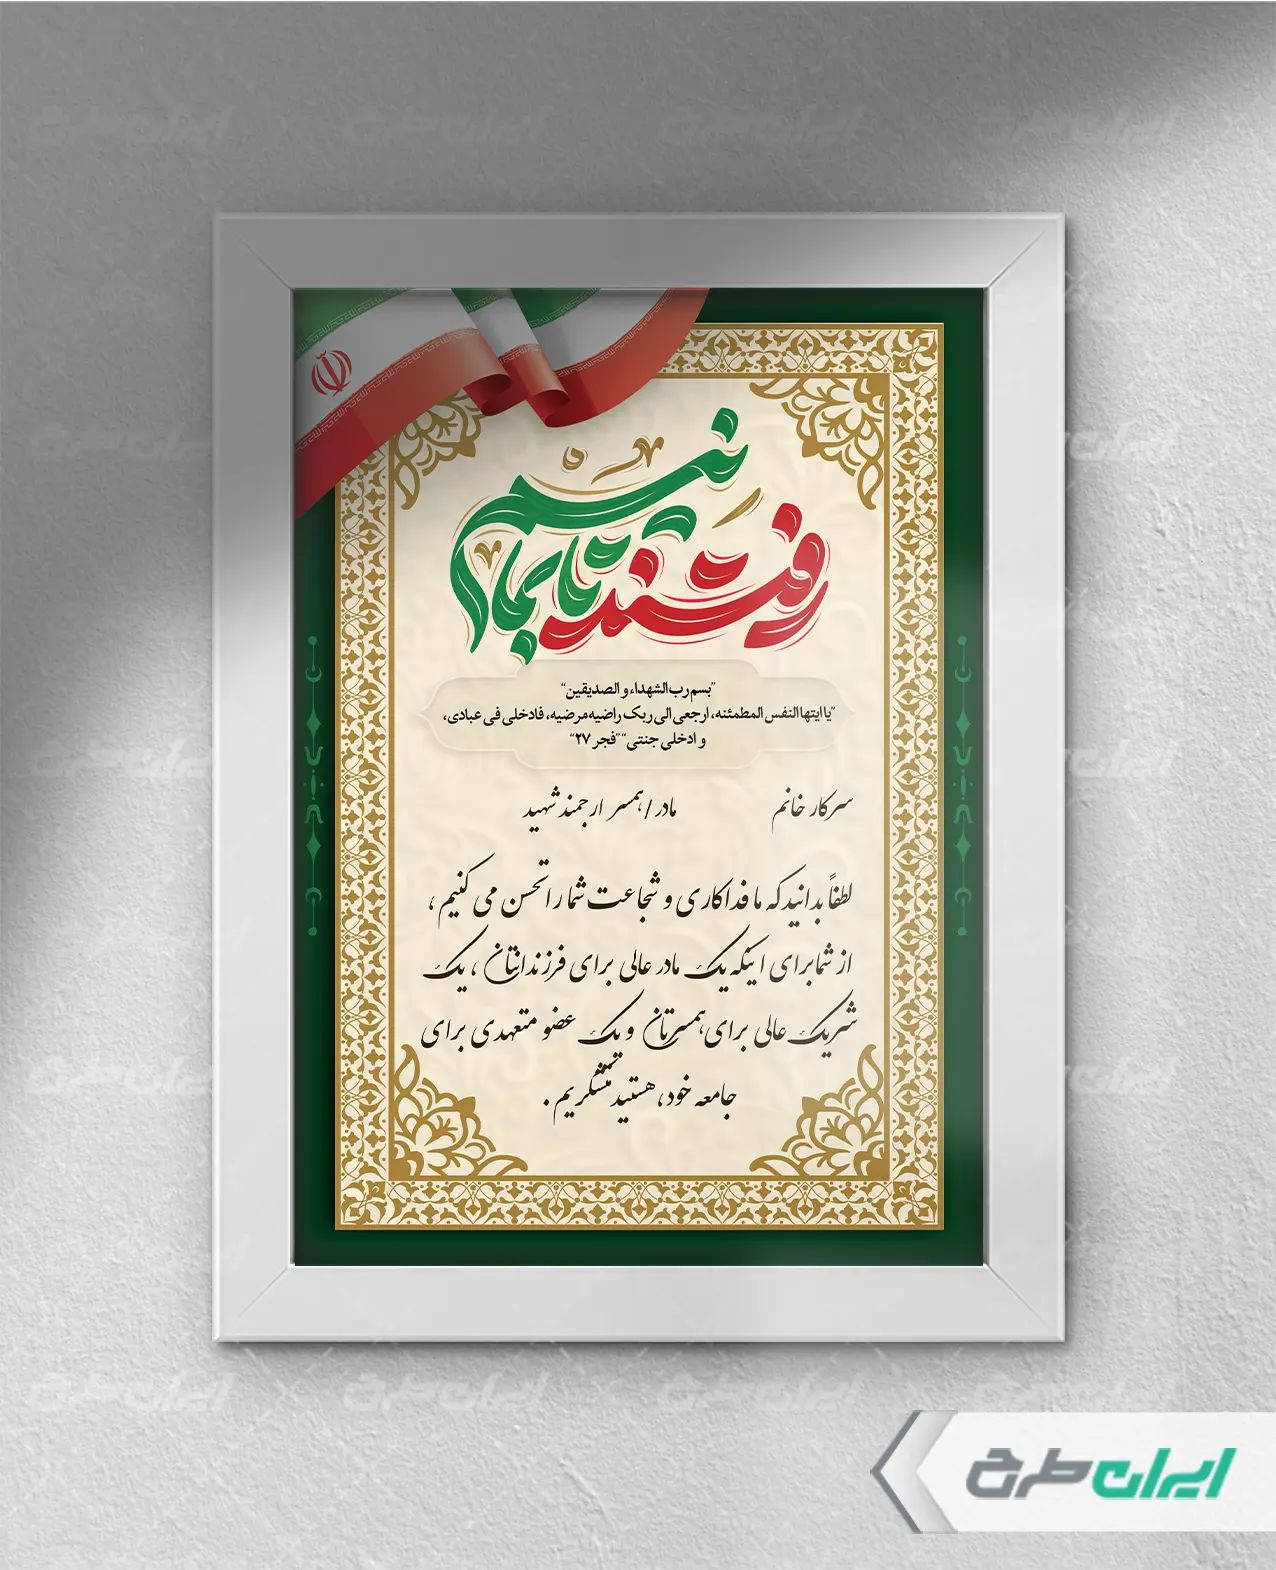 رفتند تا بمانیم
"بسم رب الشهداء و الصدیقین"
"یا ایتها النفس المطمئنه، ارجعی الی ربک راضیه مرضیه، فادخلی فی عبادی،
و ادخلی جنتی" "فجر ۲۷"
سرکار خانم مادر / همسر ارجمند شهید
لطفاً بدانید که ما فداکاری و شجاعت شما را تحسن می کنیم ،
از شما برای اینکه یک مادر عالی برای فرزندانتان ، یک
شریک عالی برای همسرتان و یک عضو متعهدی برای
جامعه خود، هستید متشکریم .
ایران طرح